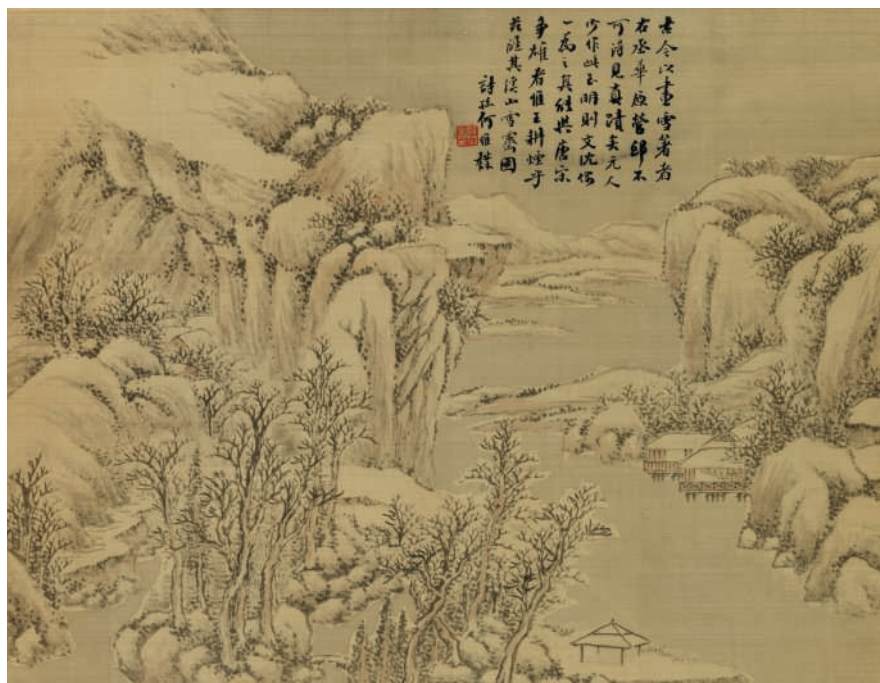 古今以畫雪著者
右丞華原營邱不
可得見真蹟矣元人
少作此至明則文沈偶
一為之其能與唐宋
爭雄者惟王耕煙乎
茲臨其溪山雪霽圖
詩孫何維樸